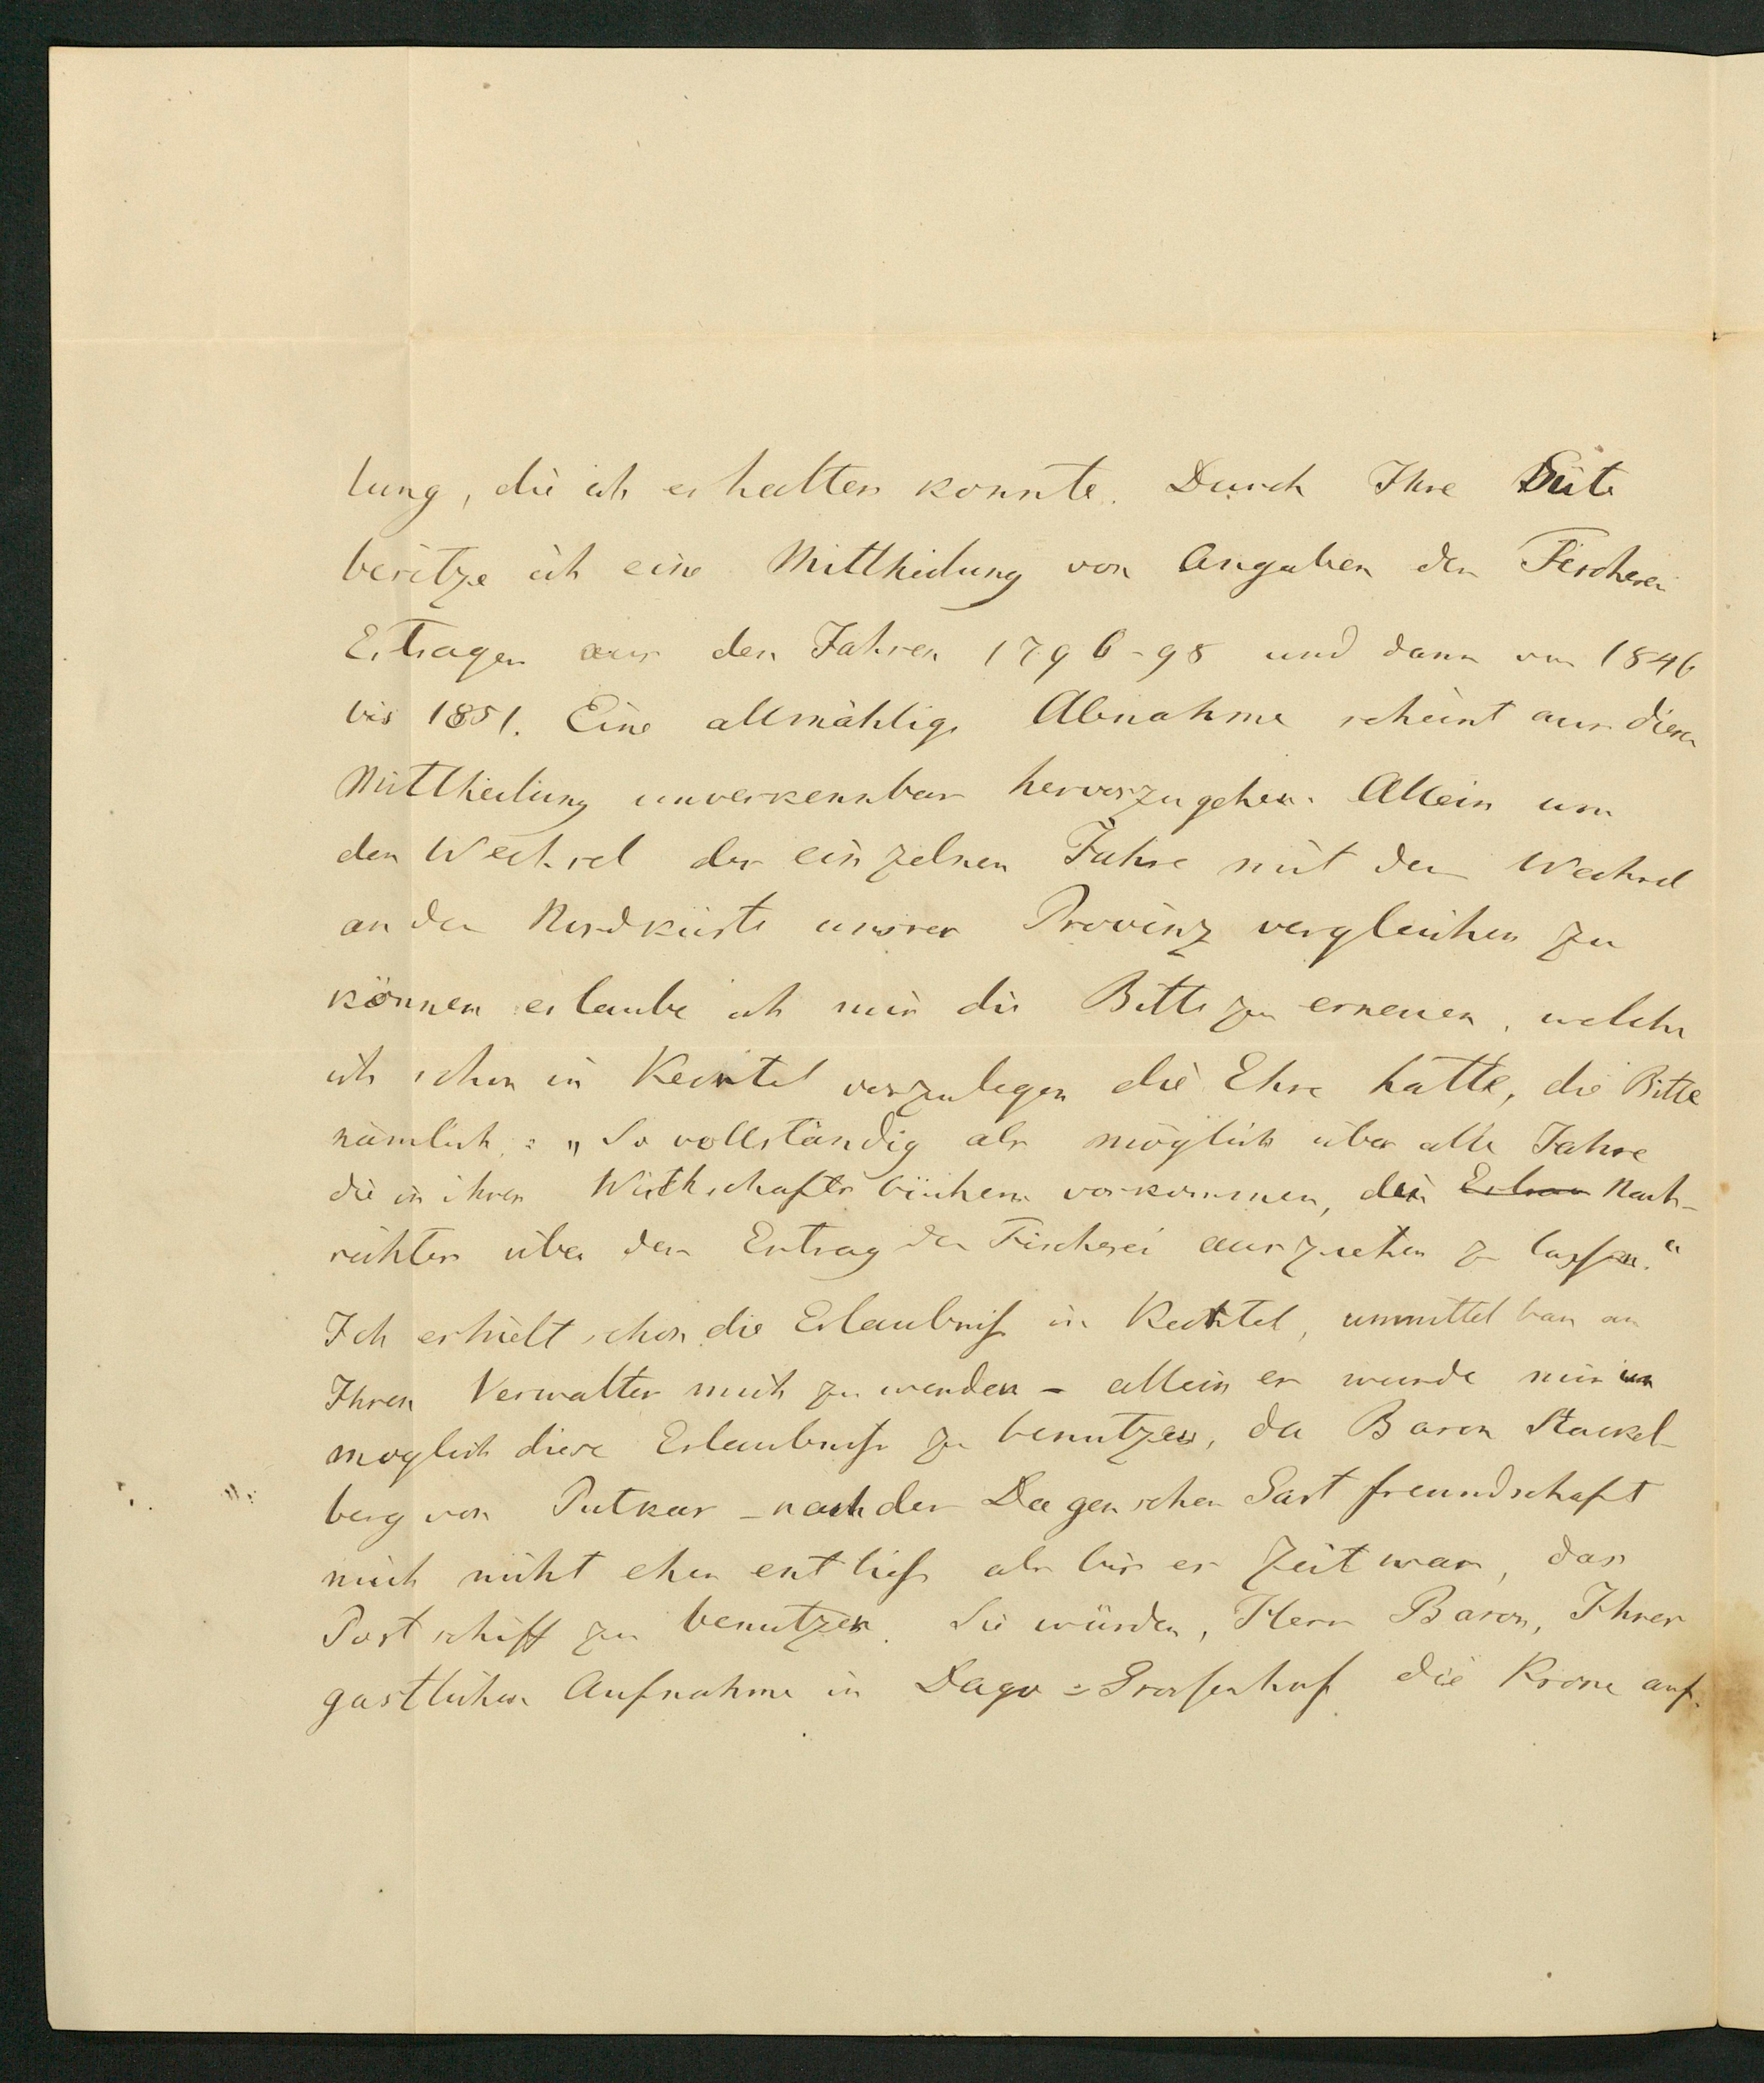 lung, die ich erhalten konnte. Durch Ihre Güte
besitze ich eine Mittheilung von Angaben der Fischerei
Ertragen aus den Jahren 1796-98 und dann von 1846
bis 1851. Eine allmählige Abnahme scheint aus dieser
Mittheilung unverkennbar hervorzugehen. Allein um
den Wechsel der einzelnen Jahre mit dem Wechsel
an der Nordküste unsrer Provinz vergleichen zu
können erlaube ich mir die Bitte zu erneuen, welche
ich schon in Kertel vorzulegen die Ehre hatte, die Bitte
nämlich: „So vollständig als möglich über alle Jahre
die in ihren Wirthschaftsbüchern vorkommen, die Nach-
richten über den Ertrag der Fischerei ausziehen zu lassen."
Ich erhielt schon die Erlaubniß in Kertel, unmittelbar an
Ihren Verwalter mich zu wenden - allein es wurde mir un
moglich diese Erlaubniß zu benutzen, da Baron Stackel-
berg von Putkas - nach der Dagenschen Gastfreundschaft
mich nicht eher entließ als bis es Zeit war, das
Postschiff zu benutzen. Sie würden, Herr Baron, Ihrer
gastlichen Aufnahme in Dago=Grossenhof die Krone auf-